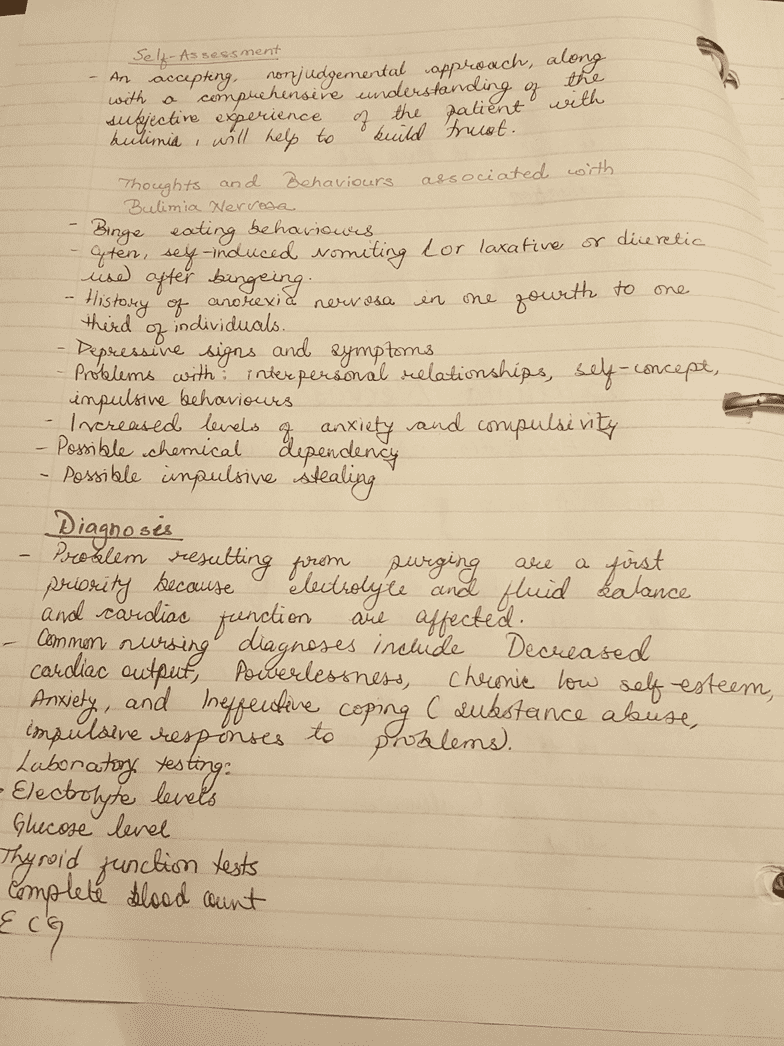 Self-Assessment
- An accepting, nonjudgemental approach, along
with a comprehensive understanding of the
subjective experience of the patient with
bulimia, will help to build trust.
Thoughts and Behaviours associated with
Bulimia Nervosa
- Binge eating behaviours
- Often, self-induced vomiting (or laxative or diuretic
use) after bingeing.
- History of anorexia nervosa in one fourth to one
third of individuals.
- Depressive signs and symptoms
- Problems with: interpersonal relationships, self-concept,
impulsive behaviours
- Increased levels of anxiety and compulsivity
- Possible chemical dependency
- Possible impulsive stealing
Diagnosis
- Problem resulting from purging are a first
priority because electrolyte and fluid balance
and cardiac function are affected.
- Common nursing diagnoses include Decreased
cardiac output, Powerlessness, Chronic low self-esteem,
Anxiety, and Ineffective coping (substance abuse,
impulsive responses to problems).
Laboratory testing:
- Electrolyte levels
Glucose level
Thyroid function tests
Complete blood count
ECG